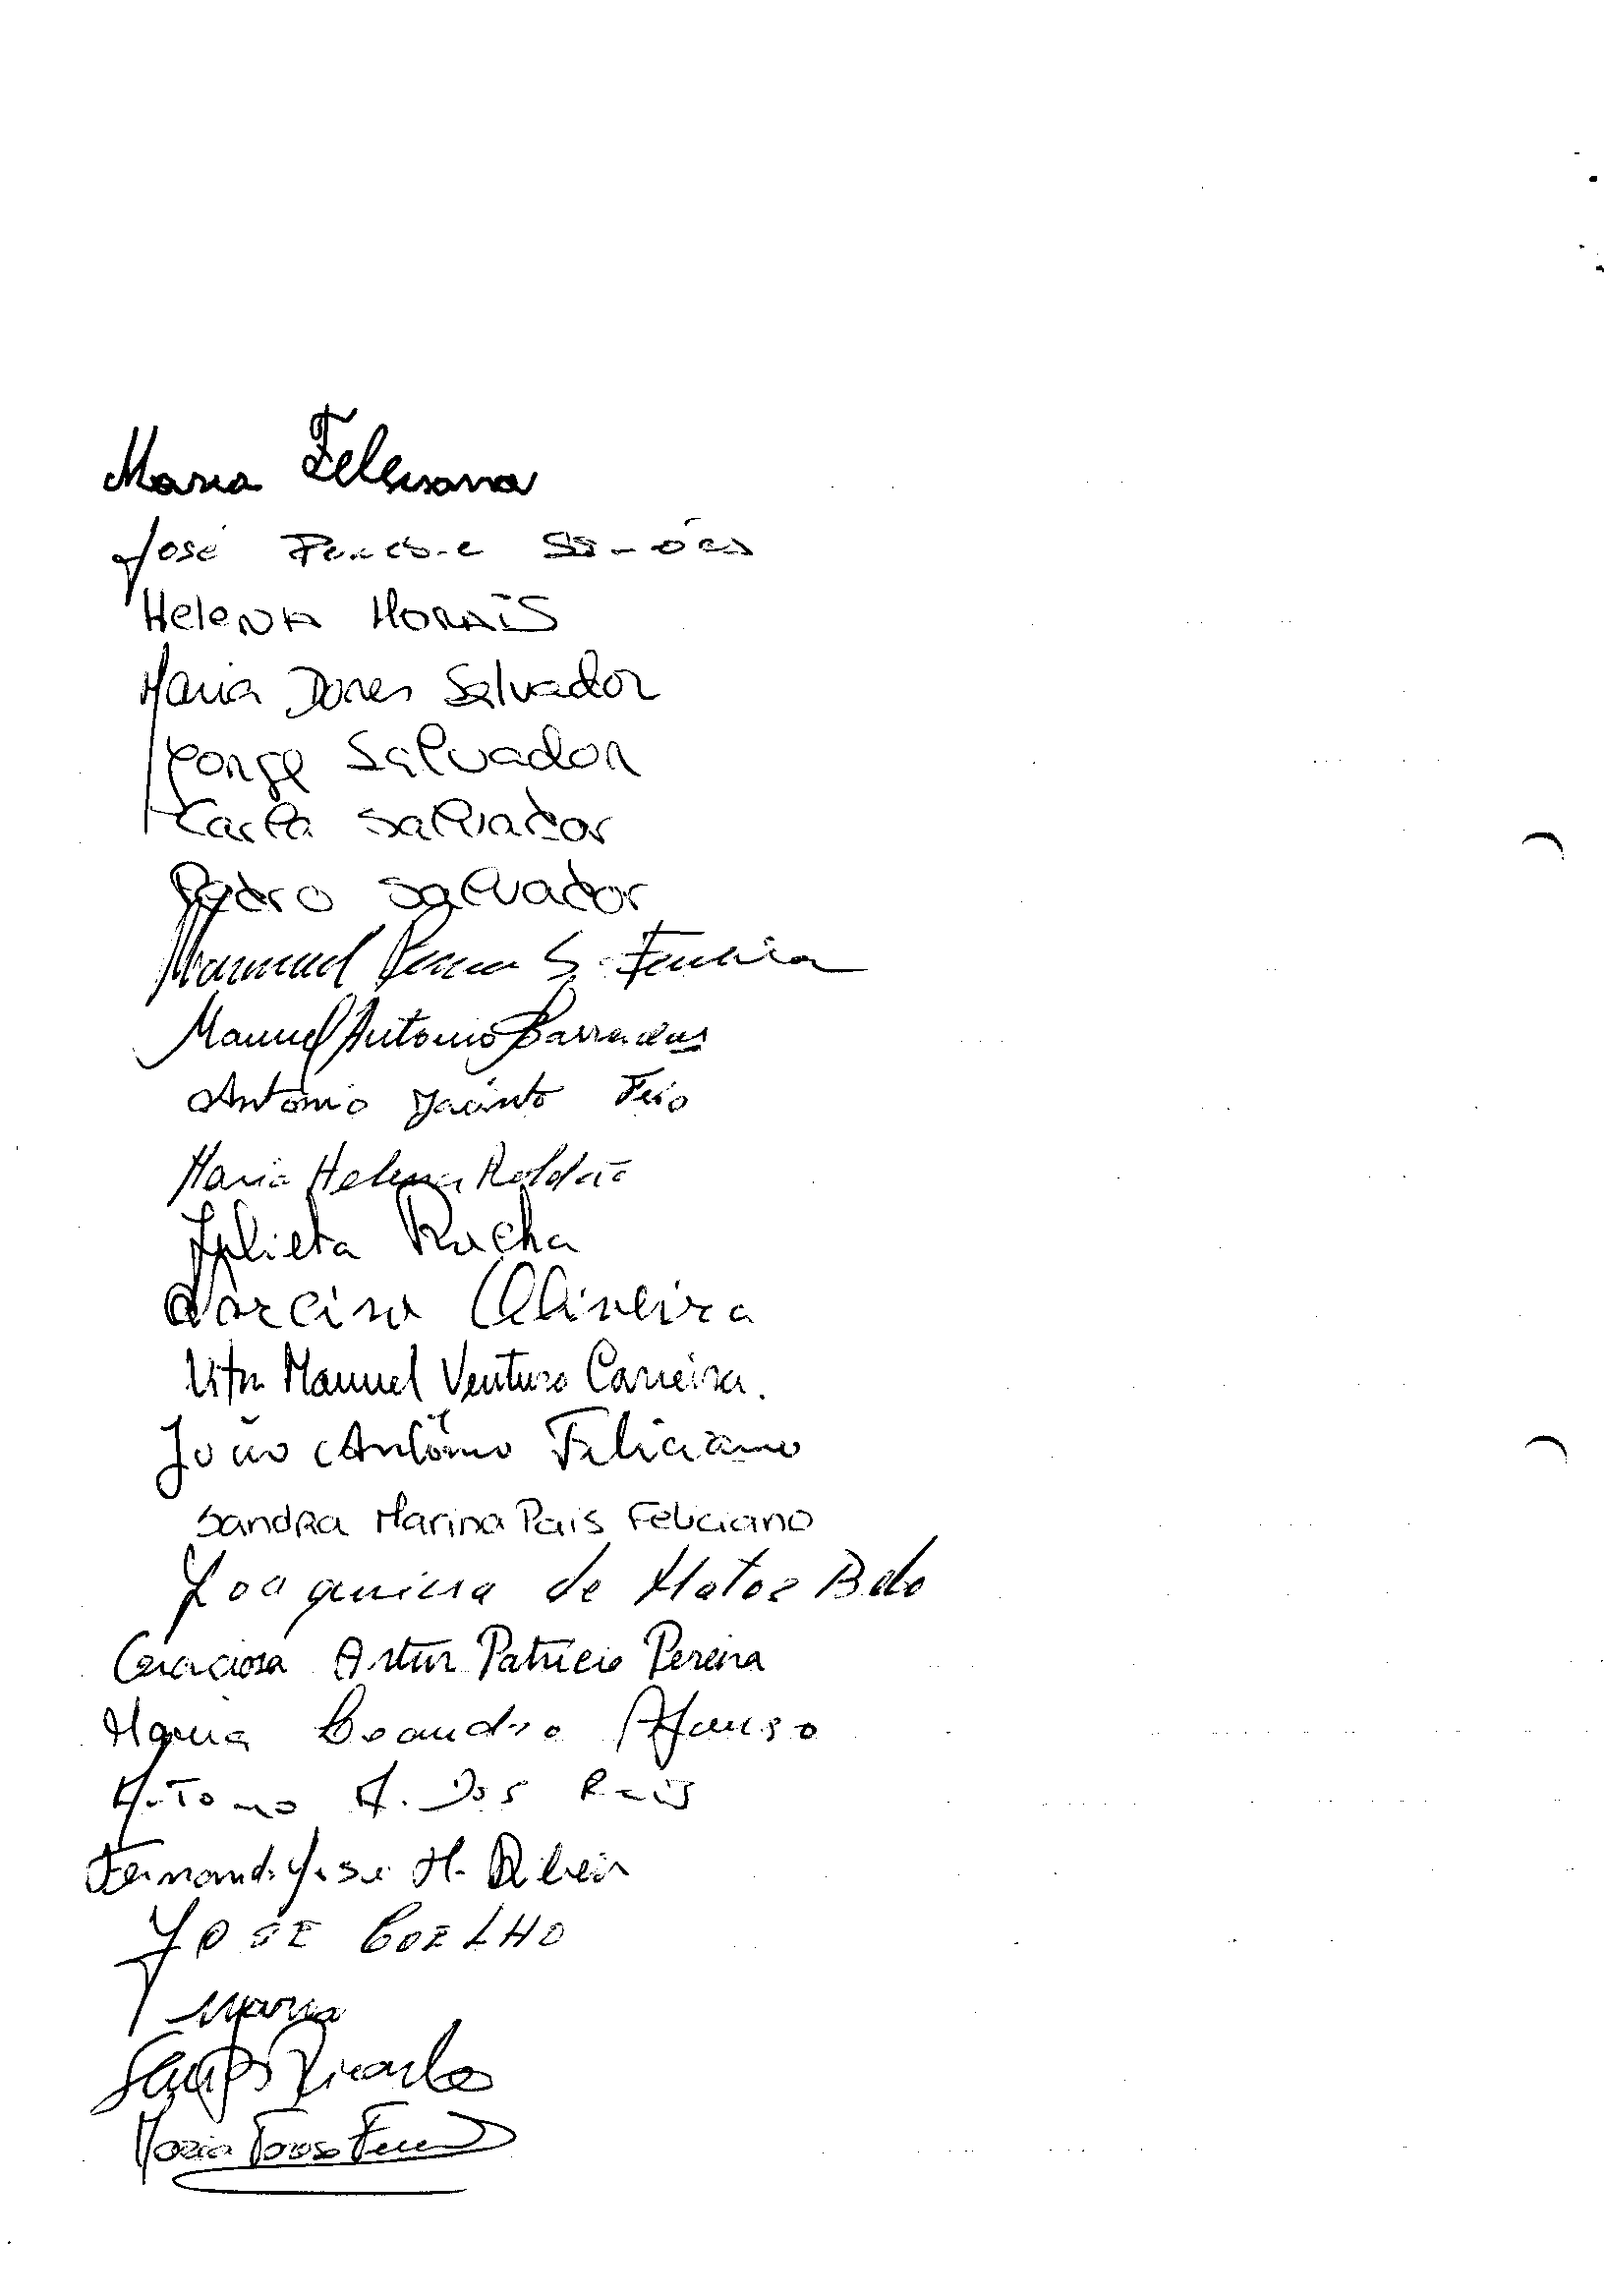 Maria
José
Helena Morais
Maria Dores Salvador
Jorge Salvador
Carla Salvador
Pedro Salvador
Manuel S. Ferreira
Manuel Antonio Barradas
António Jacinto Feio
Maria Helena Roldão
Julieta Rocha
Narcisa Oliveira
Vitor Manuel Ventura Carreira.
João António Feliciano
Sandra Marina Pais Feliciano
Joaquina de Matos Belo
Graciosa Artur Patricio Pereira
Maria Leandro Afonso
António A. Dos Reis
Fernando José M. Ribeiro
JOSE COELHO
Maria
Ricardo
Maria